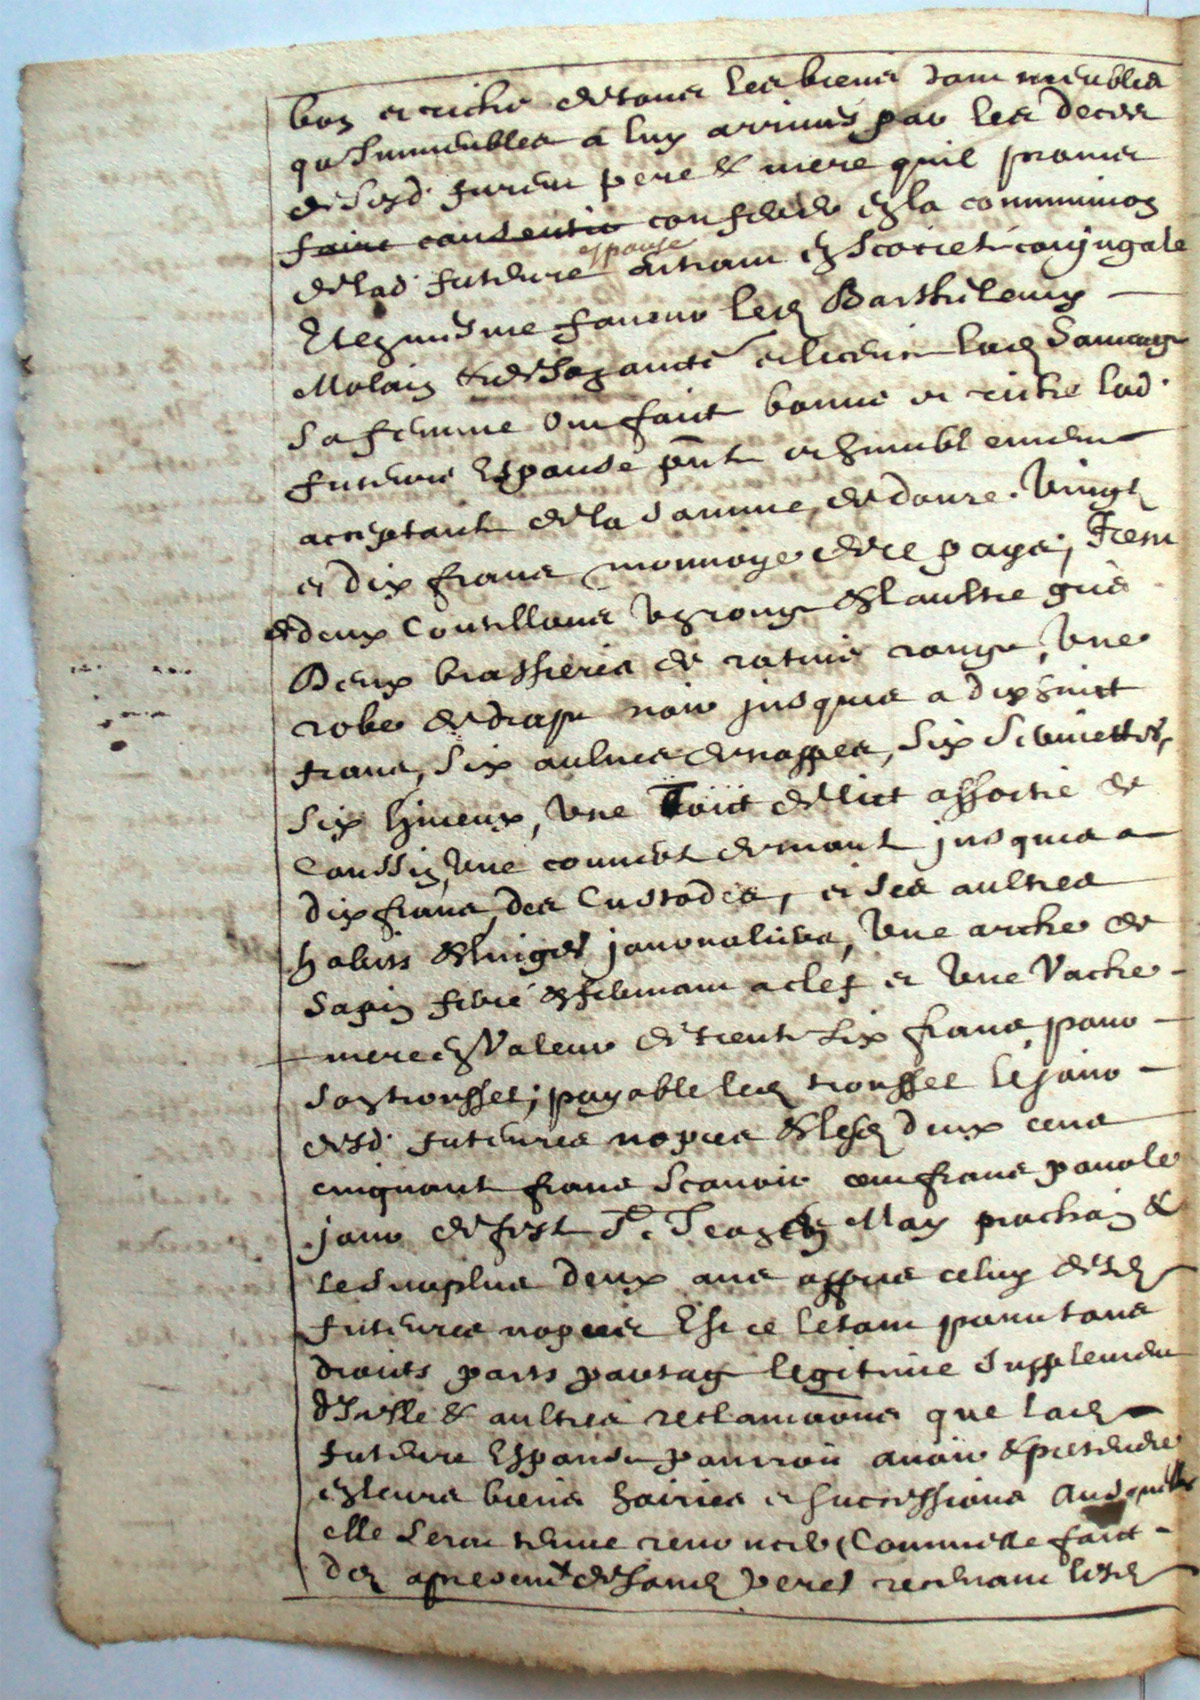 bon et riche de tous les biens tant meubles
qu'immeubles a luy arrivés par les deces
de sesd. furent pere & mere quil promet
faire consentir confondre en la communion
de lad. future espouse entrant en societé conjugale
Et en mesme faveur led Barthelemy
Molain de son aucté et licence lad Sauvage
sa femme ont fait bonne et riche lad.
future Espouse pnte et humblement
acceptant de la somme de douze vingt
et dix frans monnoye de ce pays, Item
de deux Coutillons un rouge & l'aultre gris
Deux brassieres de ratine rouge, Une
robe de drap noir jusques a dixhuict
frans, six aulnes de nappes, six serviettes,
six linceux, une Coitt de lict assortie de
Coussin, une couverte de mont jusques a
dix frans, des Custodes, et ses aultres
habits & linges journaliers, Une arche de
sapin ferré & fermant a clef et Une Vache
mere en Valeur de trente six frans pour
son troussel; payable led troussel le jour
desd. futures nopces & lesd deux cens
cinquante frans scavoir cent frans pour le
jour de feste St. Jean en May prochain &
le surplus deux ans appres celuy desd
futures nopces Et ce letout pour tous
droits parts partag legitime supplement
d'icelle & aultres reclamations que lad
future Espouse pourroit avoir & pretendre
en leurs biens hoiries et successions Ausquelles
elle sera tenue renoncer Comme elle fait
des a present de l'aucté